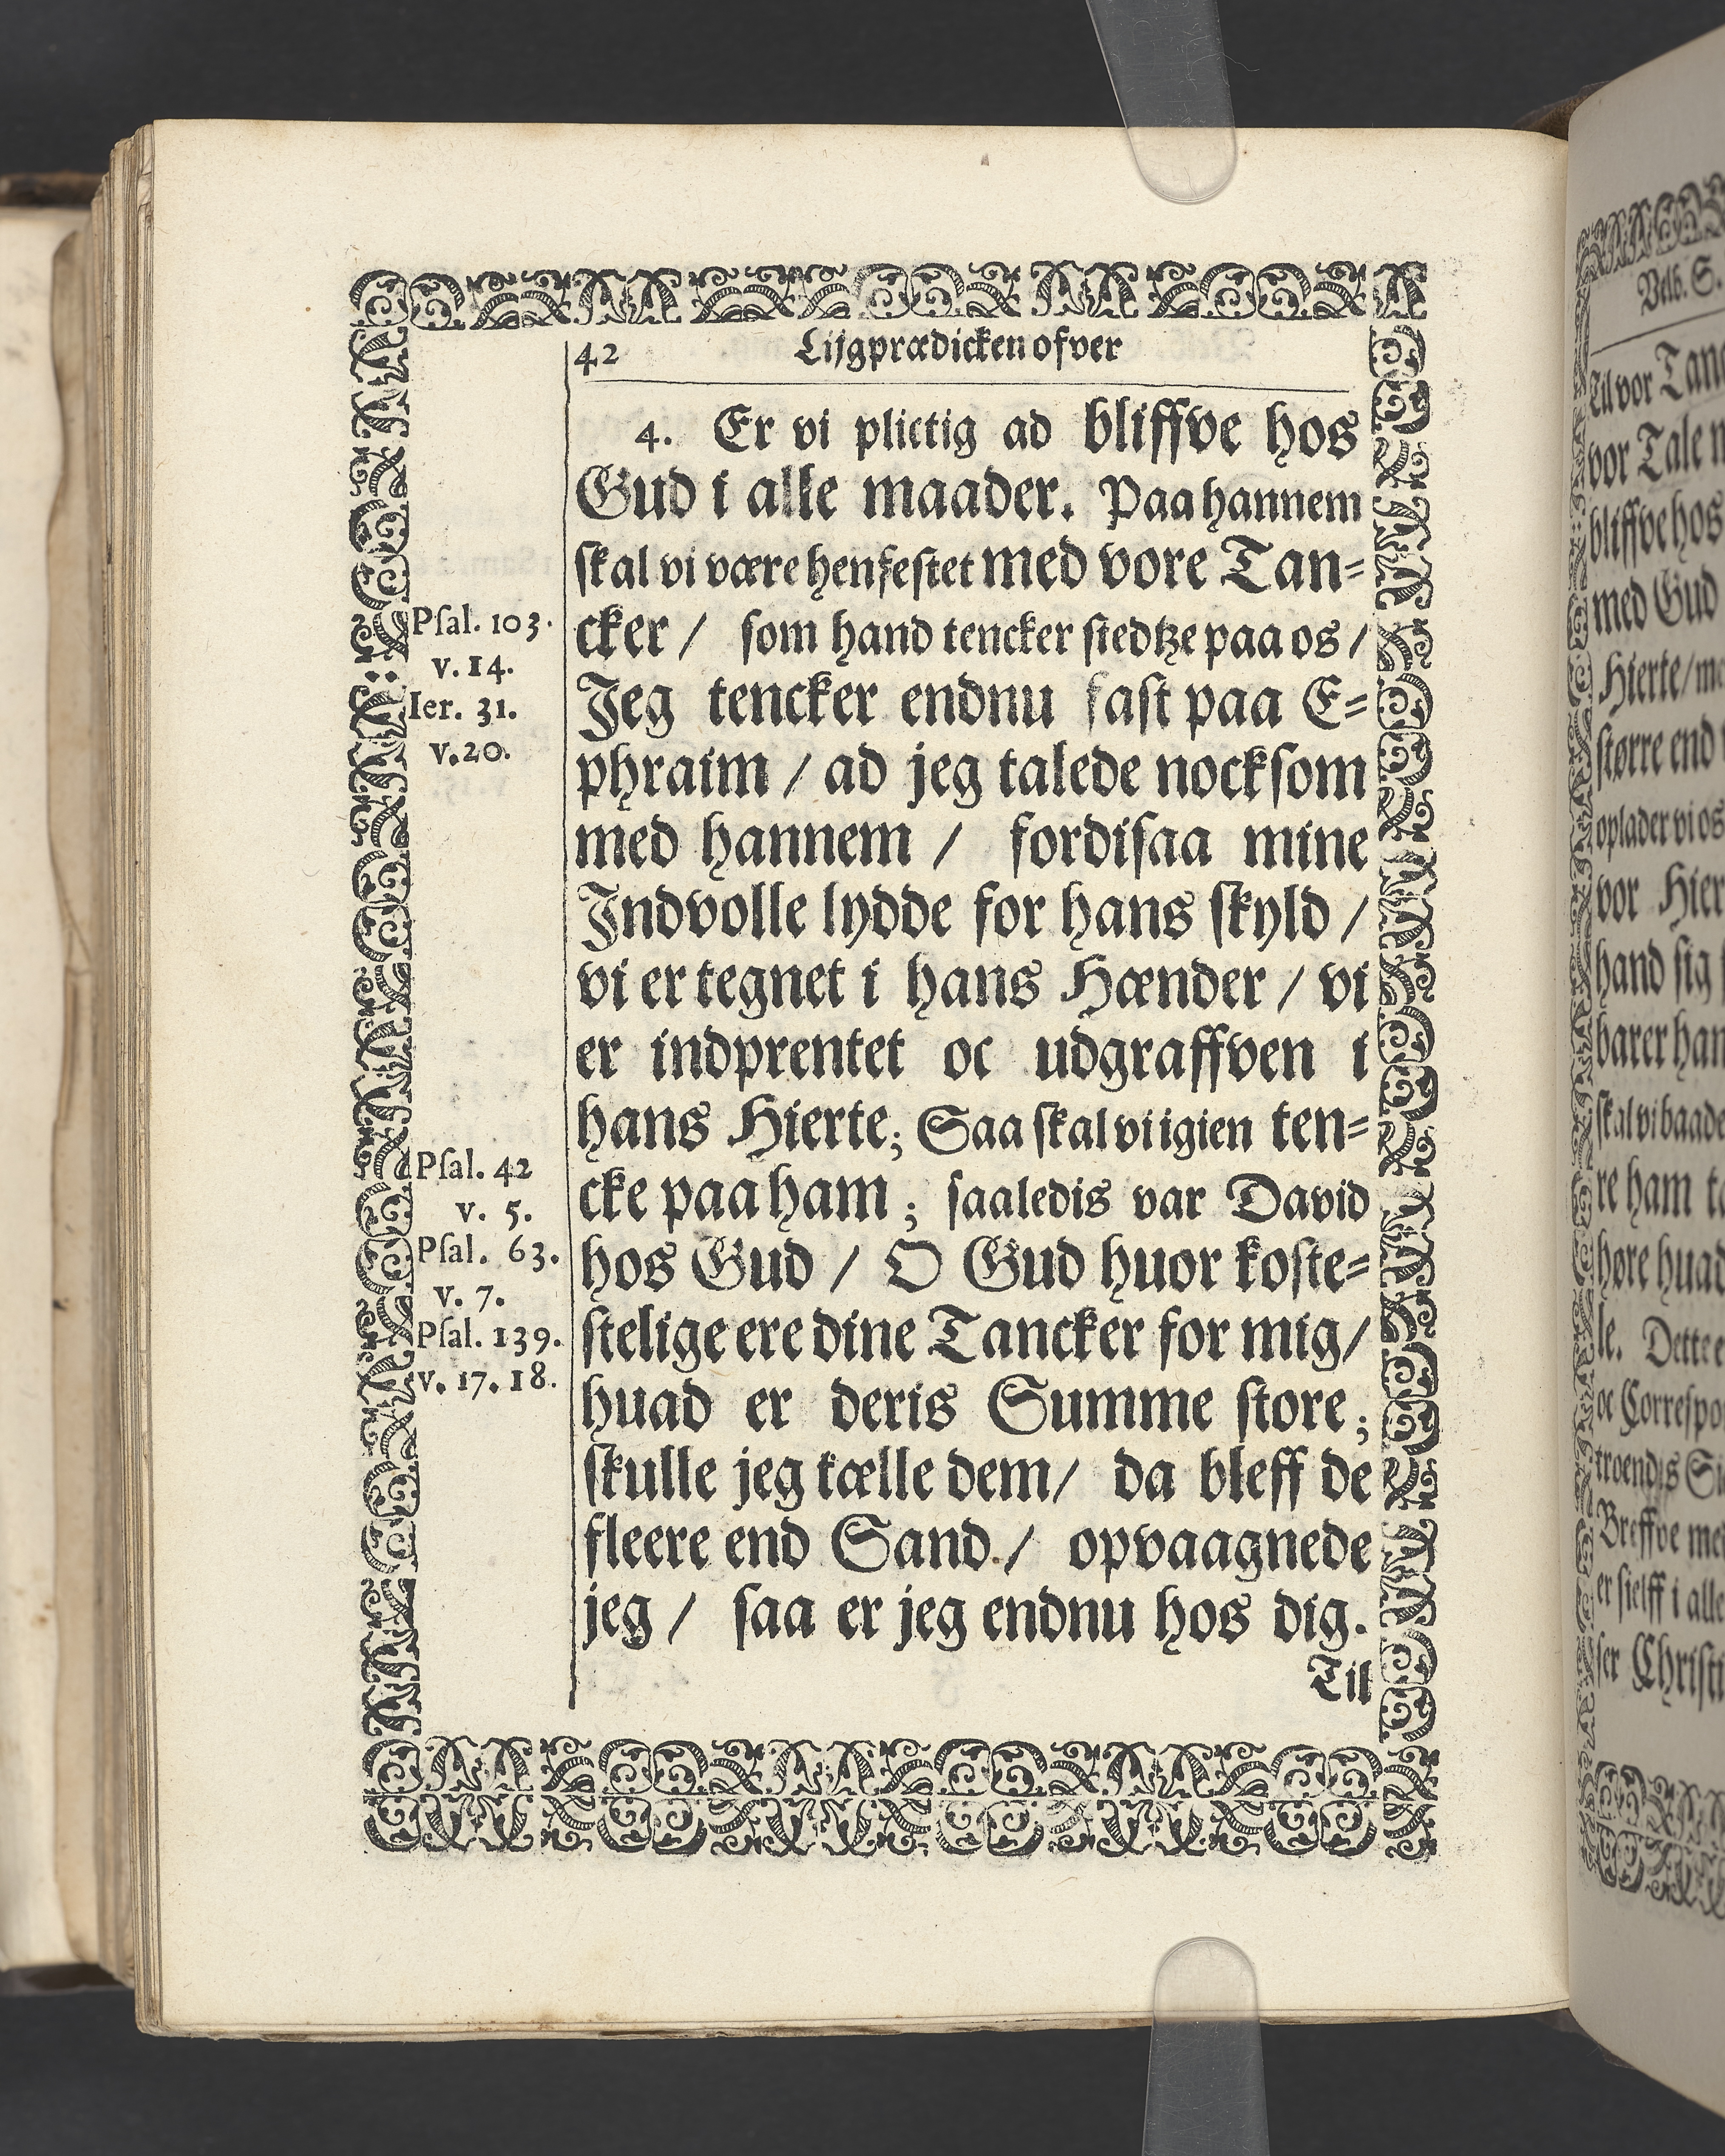 42 Lijgprædicken ofver
4. Er vi plictig ad bliffve hos
Gud i alle maader. Paa hannem
skal vi være henfestet med vore Tan=
cker / som hand tencker stedtze paa os /
Jeg tencker endnu fast paa E=
phraim / ad jeg talede nocksom
med hannem / fordisaa mine
Indvolle lydde for hans skyld /
vi er tegnet i hans Hænder / vi
er indprentet oc udgraffven i
hans Hierte; Saa skal vi igien ten=
cke paa ham ; saaledis var David
hos Gud / O Gud huor koste=
stelige ere dine Tancker for mig /
huad er deris Summe store ;
skulle jeg tælle dem / da bleff de
fleere end Sand. / opvaagnede
jeg / saa er jeg endnu hos dig.
Til
Psal. 103.
v. 14.
Ier. 31.
v. 20.
Psal. 42
v. 5.
Psal. 63.
v. 7.
Psal. 139.
v. 17. 18.
Til vor
vor Tale
bliffve hos
med Gud
Hierte /
større end
oplader vi os
vor
hand sig
skal vi
re ham
høre
le. Dette
oc
Breffve
er sielff i alle